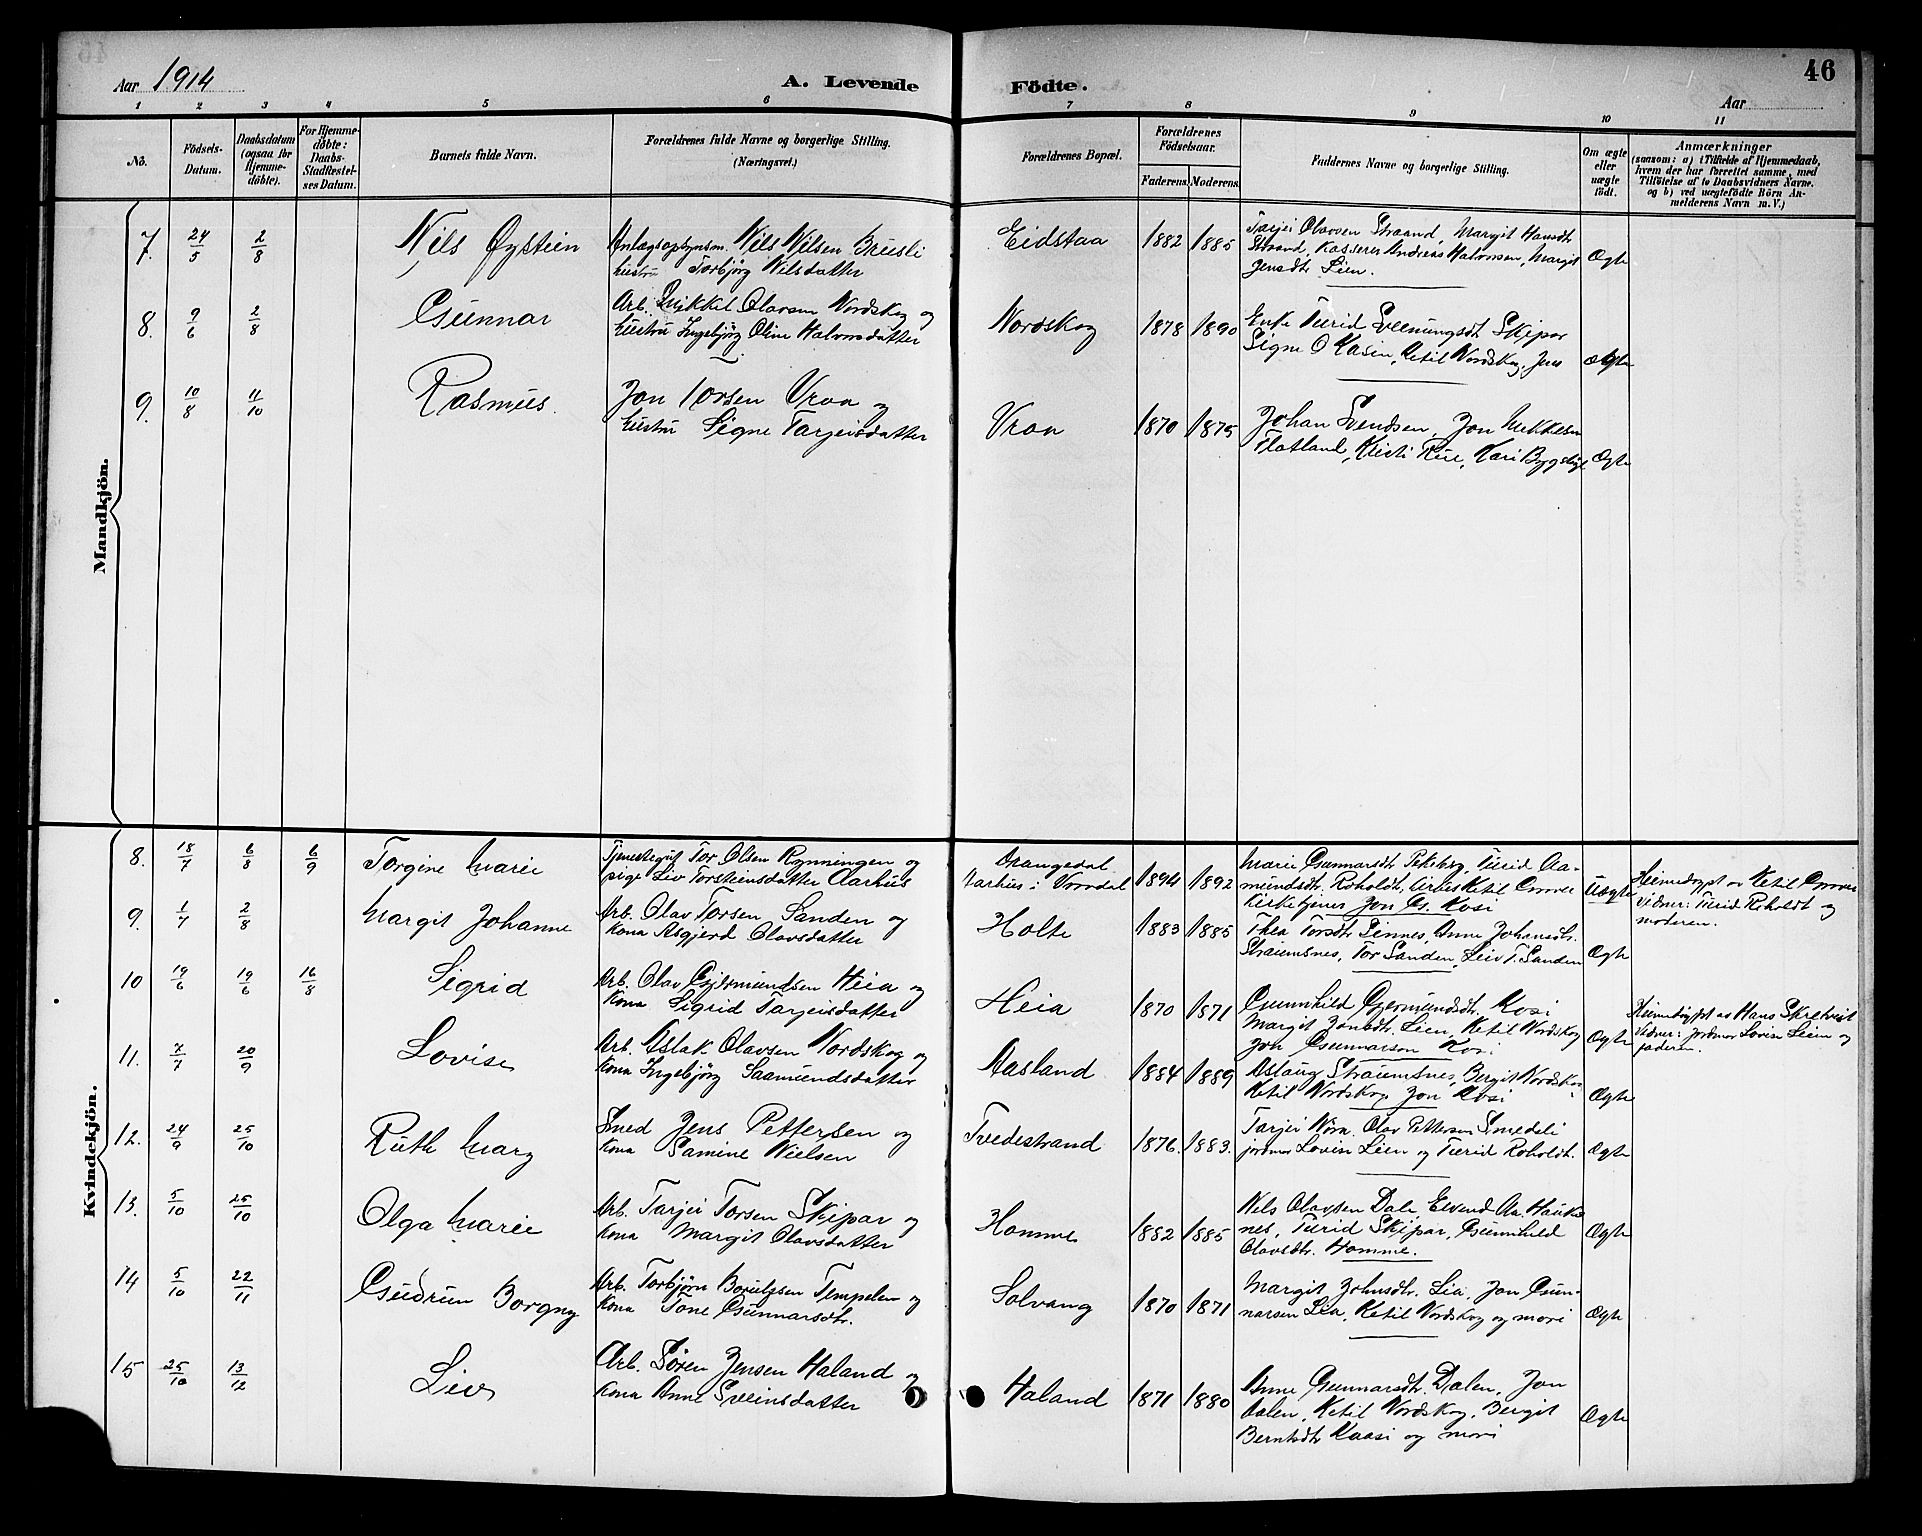 Aar 1914
A. Levende
Födte.
46
Aar
1 2 3 4 5 6 7 8 9 10 11
No.
Födsels-
Datum.
Daabsdatum
(ogsaa for
Hjemme-
döbte).
For Hjemme-
döbte:
Daabs-
Stadfestel-
ses Datum.
Barnets fulde Navn.
Forældrenes fulde Navne og borgerlige Stilling.
(Næringsvei.)
Forældrenes Bopæl.
Forældrenes
Födselsaar.
Faderens. Moderens.
Faddernes Navne og borgerlige Stilling.
Om ægte
eller
uægte
födt.
Anmærkninger
(saasom: a) i Tilfælde af Hjemmedaab,
hvem der har forrettet samme, med
Tilföielse af to Daabsvidners Navne.
og b) ved uægtefödte Börn An-
melderens Navn m. V.)
Mandkjön.
7. 24/5 2/8 Nils Øystein
Anlægsopsynsm. Nils Nilsen Brusli
hustru Torbjörg Nilsdatter
Eidstaa 1882 1885
Tarjei Olavsen Straand, Margit Hansdtr
Straand, Kasserer Andreas Halvorsen, Margit
Jensdtr Lien.
Ægte
8. 9/6 2/8 Gunnar
Arb. Mikkel Olavsen Nordskog og
hustru Ingebjörg Oline Halvorsdatter
Nordskog 1878 1890
Enke Turid Sveinungsdt. Skipar
Signe O Kasin, Ketil Nordskog, Jens
Ægte
9. 10/8 11/10 Rasmus.
Jon Torsen Vraa og
hustru Signe Tarjeisdatter
Vraa 1870 1875
Johan Svendsen, Jon Mikkelsen
Flatland, Kristi Rue, Kari
Ægte
Kvindekjön.
8. 18/7 6/8 6/9 Torgine Marie
Tjenestegut Tor Olsen Rynningen og
pige Liv Torsteinsdatter Aarhus
Drangedal
Aarhus i Vraadal 1894 1892
Marie Gunnarsdtr. Turid Aa-
mundsdtr. Roholdt, Ketil
Kirketjener Jon G. Kosi
Uægte
Heimedøypt av Ketil
Vidner: Turid Roholdt og
moderen.
9. 1/7 2/8 Margit Johanne
Arb. Olav Torsen Sanden og
Kona Asgjerd Olavsdatter
Holte 1883 1885
Thea Torsdtr Tinnes, Anne Johansdtr.
Straumsnes, Tor Sanden, Leiv T. Sanden
Ægte
10 19/6 19/6 16/8 Sigrid
Arb. Olav Gjermundsen Heia og
Kona Sigrid Tarjeisdatter
Heia 1870 1871
Gunnhild Gjermundsdtr. Kosi
Margit Jonsdtr. Lien, Ketil Nordskog
Jon Gunnarson Kosi
Ægte
Heimedøypt av Hans Skretveit
Vidner: Jordmor Lovise Lien og
faderen.
11. 7/7 20/9 Lovise
Arb. Aslak Olavsen Nordskog og
Kona Ingebjörg Saamundsdatter
Aasland 1884 1889
Aslaug Straumsnes, Bergit Nordskog
Ketil Nordskog Jon Kosi
Ægte
12. 24/9 25/10 Ruth Mary
Smed Jens Pettersen og
Kona Samine Nielsen
Tvedestrand 1876. 1883.
Tarjei Vraa. Olav Pettersen Smedeli
jordmor Lovise Lien og Turid Roholdt.
Ægte
13. 5/10 25/10 Olga Marie
Arb. Tarjei Torsen Skipar og
Kona Margit Olavsdatter
Homme 1882 1885
Nils Olavsen Dale, Eivend Aa. Hauke-
nes, Turid Skipar, Gunnhild
Olavsdtr. Homme.
Ægte
14 5/10 22/11 Gudrun Borgny
Arb. Torbjørn Børuljsen Tempelen og
Kona Tone Gunnarsdtr.
Solvang 1870 1871
Margit Johnsdtr. Lia, Jon Gun-
narsen Lia, Ketil Nordskog og mori
Ægte
15 25/10 13/12 Liv
Arb. Søren Jensen Haland og
Kona Anne Sveinsdatter
Haland 1871 1880
Anne Gunnarsdtr. Dalen, Jon
Dalen, Ketil Nordskog, Bergit
Berntsdtr Kaasi og mori
Ægte